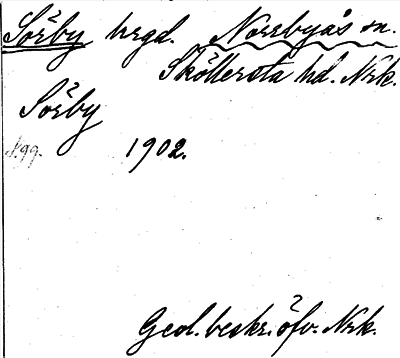 Sörby hrgd. Norrbyås sn.
Sköllersta hd. Nrk.
Sörby
1902.
s. 99.
Geol. beskr. öfv. Nrk.